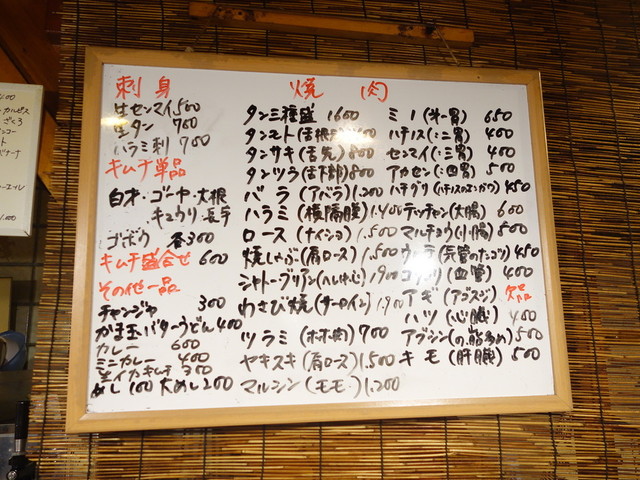 刺身
生センマイ 500
生タン 700
ハラミ刺 700
キムチ単品
白才・ゴーヤ・大根
キュウリ・長芋
ゴボウ 各300
キムチ盛合せ 600
その他一品
チャンジャ 300
かま玉バターうどん 400
カレー 600
ミニカレー 400
生イカキムチ 300
めし 100 大めし 200
焼肉
タン三種盛 1600
タンモト(舌根
タンサキ(舌先) 800
タンツラ(舌下部) 800
バラ(アバラ) 1.200
ハラミ(横隔膜) 1.400
ロース(ナイショ) 1.500
焼しゃぶ(肩ロース) 1.500
シャトーブリアン(ヘレ中心) 1.900
わさび焼(サーロイン) 1.900
ツラミ(ホホ肉) 700
ヤキスキ(肩ロース) 1.500
マルシン(モモ) 1.200
ミノ(第一胃) 650
ハチノス(〃二胃) 400
センマイ(〃三胃) 400
アカセン(〃四胃) 500
ハチグリ
テッチャン(大腸) 600
マルチョウ(小腸) 500
(気管のナンコツ) 450
コリコリ(血管) 400
アギ(アゴスジ) 欠品
ハツ(心臓) 400
アブシン(〃脂多め) 500
キモ(肝臓) 500
カルピス
ざくろ
バナナ